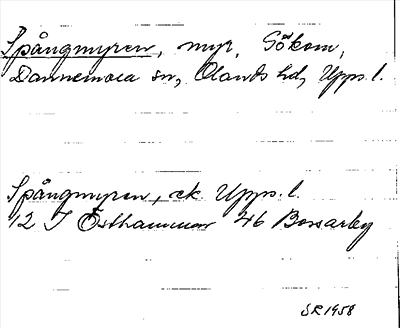 Spångmyren, myr, Gökom,
Dannemora sn, Olands hd, Upps. l.
Spångmyren, ek. Upps. l.
12 I Östhammar 46 Bossarby
SR 1958